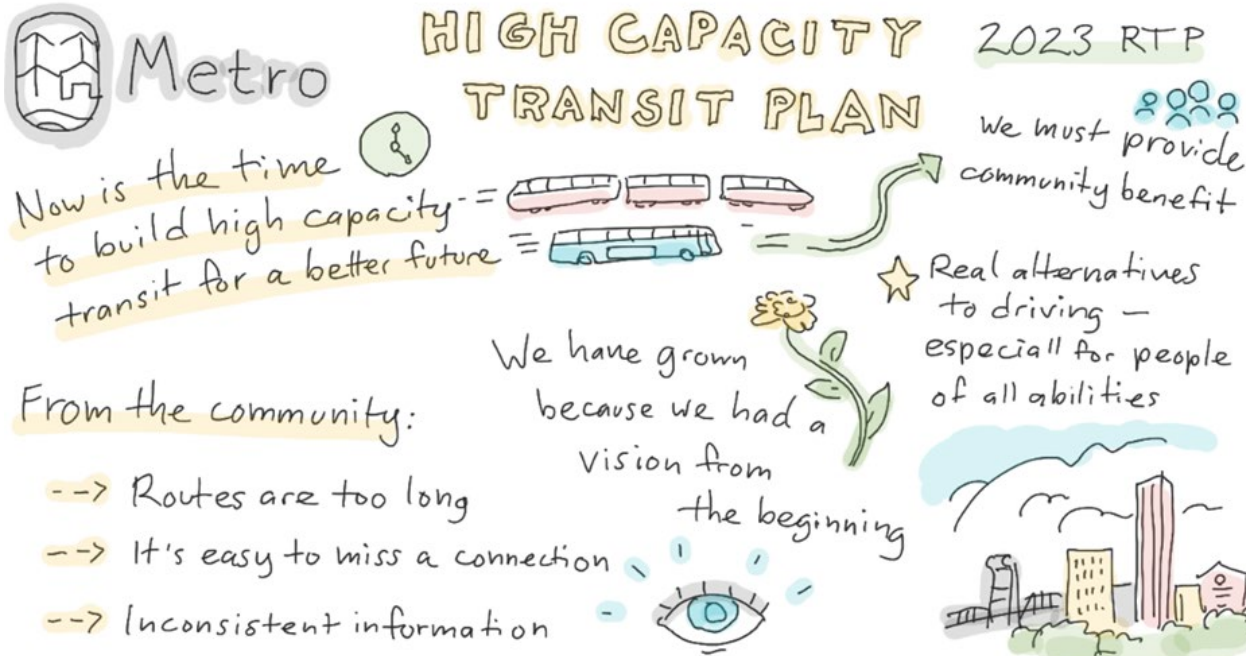 Metro
HIGH CAPACITY
TRANSIT PLAN
2023 RTP
Now is the time
to build high capacity
transit for a better future
we must provide
community benefit
Real alternatives
to driving –
especiall for people
of all abilities
We have grown
because we had a
vision from
the beginning
From the community:
--> Routes are too long
--> It's easy to miss a connection
--> Inconsistent information